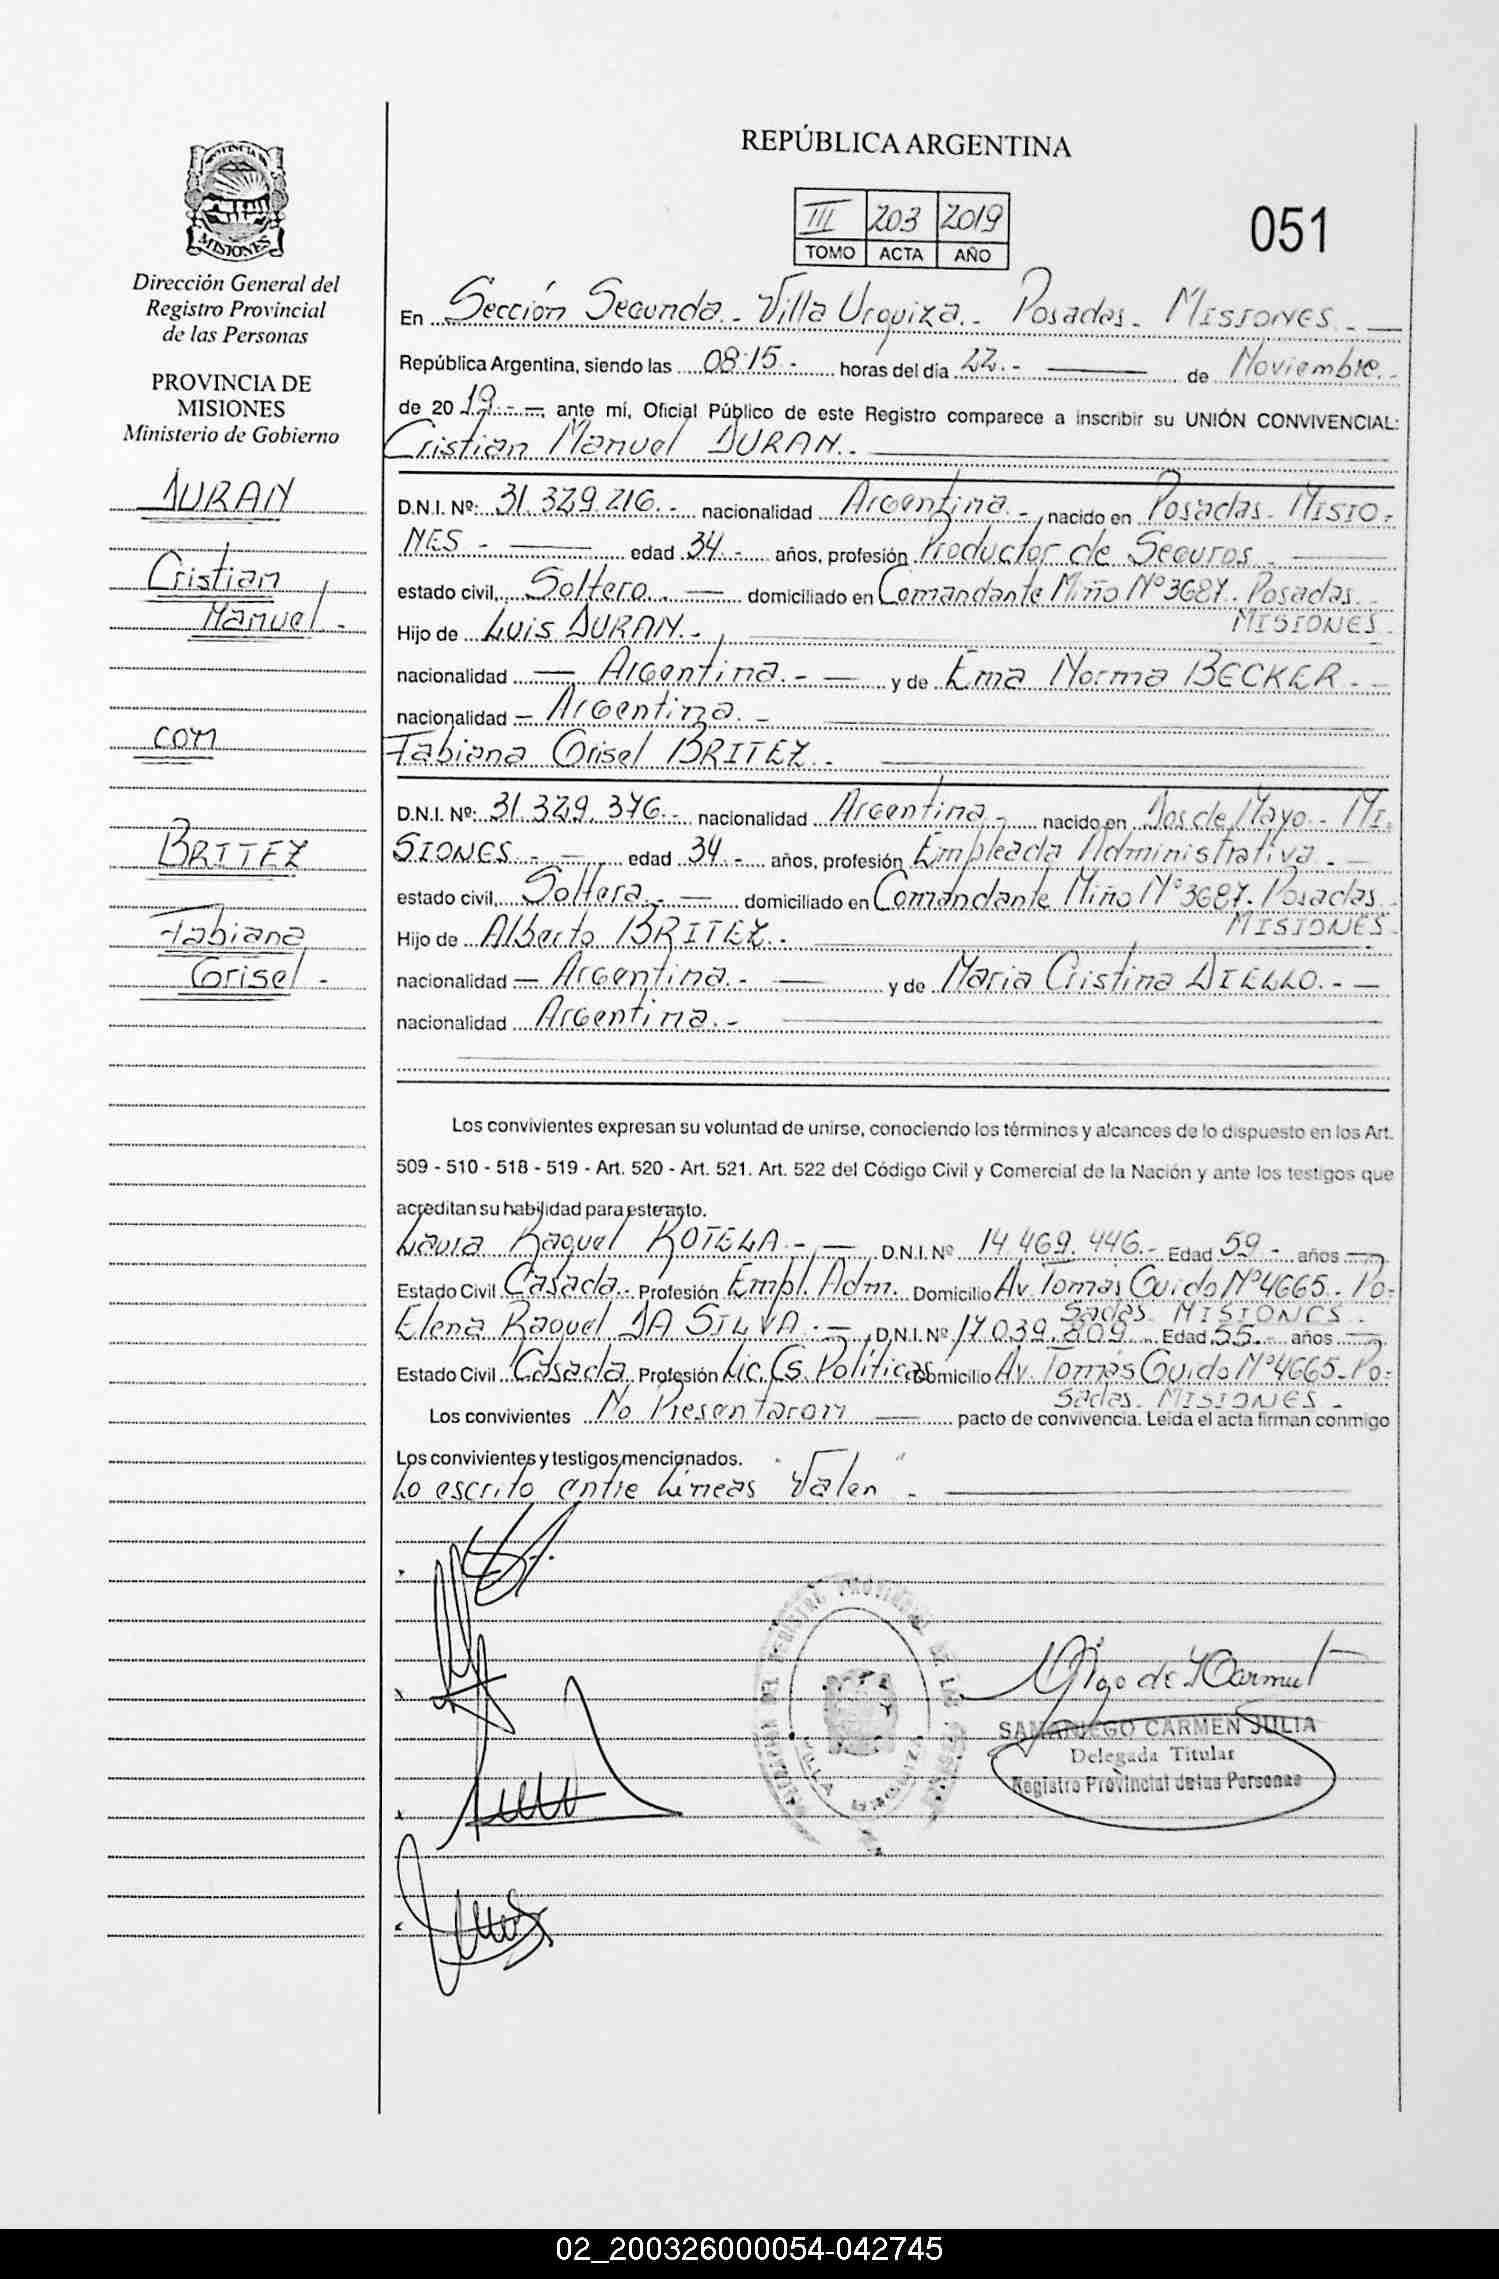 PROVINCIA DE
MISIONES
Dirección General del
Registro Provincial
de las Personas
PROVINCIA DE
MISIONES
Ministerio de Gobierno
DURAN
Cristian
Manuel -
con
BRITEZ
Fabiana
Grisel -
REPÚBLICA ARGENTINA
III 203 2019
TOMO ACTA AÑO
051
En Sección Segunda.- Villa Urquiza.- Posadas- MISIONES.-
República Argentina, siendo las 08:15.- horas del día 22.- de Noviembre.-
de 2019.-, ante mí, Oficial Público de este Registro comparece a inscribir su UNIÓN CONVIVENCIAL:
Cristian Manuel DURAN.-
D.N.I. Nº: 31.329.216.- nacionalidad Argentina.-, nacido en Posadas- MISIO-
NES.- edad 34.- años, profesión Productor de Seguros.-
estado civil, Soltero.- domiciliado en Comandante Miño Nº 3687. Posadas.-
MISIONES.-
Hijo de Luis DURAN.-,
nacionalidad Argentina.- y de Ema Norma BECKER.-
nacionalidad Argentina.-
Fabiana Grisel BRITEZ.-
D.N.I. Nº: 31.329.376.- nacionalidad Argentina.- nacido en Dos de Mayo- MI-
SIONES.- edad 34.- años, profesión Empleada Administrativa.-
estado civil, Soltera.- domiciliado en Comandante Miño Nº 3687. Posadas.-
MISIONES.-
Hijo de Alberto BRITEZ.-
nacionalidad Argentina.- y de Maria Cristina DIELLO.-
nacionalidad Argentina.-
Los convivientes expresan su voluntad de unirse, conociendo los términos y alcances de lo dispuesto en los Art.
509 - 510 - 518 - 519 - Art. 520 - Art. 521. Art. 522 del Código Civil y Comercial de la Nación y ante los testigos que
acreditan su habilidad para este acto.
Laura Raquel ROTELA.-, D.N.I. Nº 14.469.446.- Edad 59.- años
Estado Civil Casada.- Profesión Empl. Adm. Domicilio Av. Tomás Guido Nº 4665.- Po-
sadas. MISIONES.-
Elena Raquel DA SILVA.-, D.N.I. Nº 17.039.809.- Edad 55.- años
Estado Civil Casada. Profesión Lic. Cs. Políticas Domicilio Av. Tomás Guido Nº 4665- Po-
sadas. MISIONES.-
Los convivientes No Presentaron pacto de convivencia. Leída el acta firman conmigo
Los convivientes y testigos mencionados.
Lo escrito entre Líneas "Valen".-
VILLA URQUIZA
SAMANIEGO CARMEN JULIA
Delegada Titular
Registro Provincial de las Personas
02_200326000054-042745